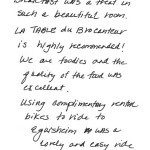 Breakfast was a treat in
such a beautiful room.
LA TABLE du Brocanteur
is highly recommended!
We are foodies and the
quality of the food was
excellent.
Using complimentary rental
bikes to ride to
Eguisheim was a
lovely and easy ride